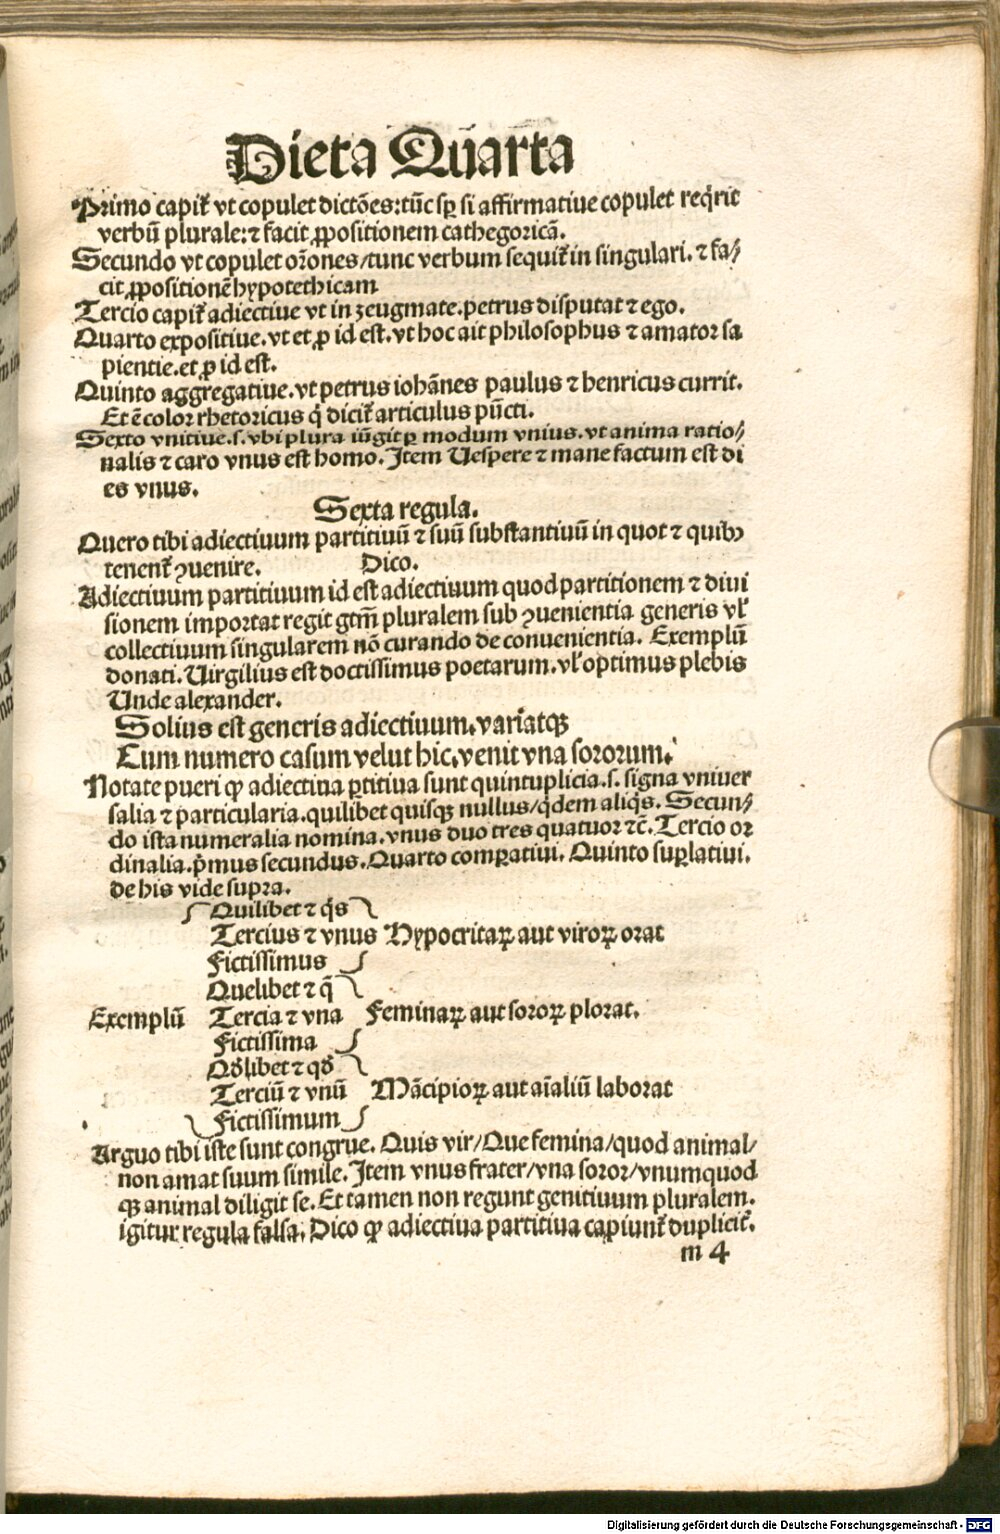 Dieta Quarta
Primo capit᷑ vt copulet dictões: tũc sp̱ si affirmatiue copulet req̇rit
verbũ plurale: ⁊ facit ꝓpositionem cathegoricã.
Secundo vt copulet or̃ones/ tunc verbum sequit᷑ in singulari. ⁊ fa/
cit ꝓpositionẽ hypotethicam
Tercio capit᷑ adiectiue vt in zeugmate. petrus disputat ⁊ ego.
Quarto expositiue. vt et ꝓ id est. vt hoc ait philosophus ⁊ amator sa
pientie. et ꝓ id est.
Quinto aggregatiue. vt petrus iohãnes paulus ⁊ henricus currit.
Et ẽ color rhetoricus q̇ dicit᷑ articulus pũcti.
Sexto vnitiue. s. vbi plura iũgit ꝑ modum vnius. vt anima ratio/
nalis ⁊ caro vnus est homo. Item Vespere ⁊ mane factum est di
es vnus.
Sexta regula.
Quero tibi adiectiuum partitiuũ ⁊ suũ substantiuũ in quot ⁊ quibꝫ
tenent᷑ ꝯuenire. Dico.
Adiectiuum partitiuum id est adiectiuum quod partitionem ⁊ diui
sionem importat regit gtm̃ pluralem sub ꝯuenientia generis vl᷑
collectiuum singularem nõ curando de conuenientia. Exemplũ
donati. Uirgilius est doctissimus poetarum. vl᷑ optimus plebis
Unde alexander.
Solius est generis adiectiuum. variãtqꝫ
Cum numero casum velut hic. venit vna sororum.
Notate pueri ꝙ adiectiua ꝑtitiua sunt quintuplicia. s. signa vniuer
salia ⁊ particularia. quilibet quisqꝫ nullus/ q̇dem aliq̇s. Secun/
do ista numeralia nomina. vnus duo tres quatuor ⁊c̃. Tercio or
dinalia. p̃mus secundus. Quarto comꝑatiui. Quinto suꝑlatiui.
de his vide supra.
Quilibet ⁊ q̇s
Tercius ⁊ vnus Hypocritaꝝ aut viroꝝ orat
Fictissimus
Quelibet ⁊ q̃
Exemplũ Tercia ⁊ vna Feminaꝝ aut soroꝝ plorat.
Fictissima
Qd̃libet ⁊ qd̃
Terciũ ⁊ vnũ Mãcipioꝝ aut aĩaliũ laborat
Fictissimum
Arguo tibi iste sunt congrue. Quis vir/ Que femina/ quod animal/
non amat suum simile. Item vnus frater/ vna soror/ vnumquod
qꝫ animal diligit se. Et tamen non regunt genitiuum pluralem.
igitur regula falsa. Dico ꝙ adiectiua partitiua capiunt᷑ duplicit᷑.
m 4
Digitalisierung gefördert durch die Deutsche Forschungsgemeinschaft - DFG